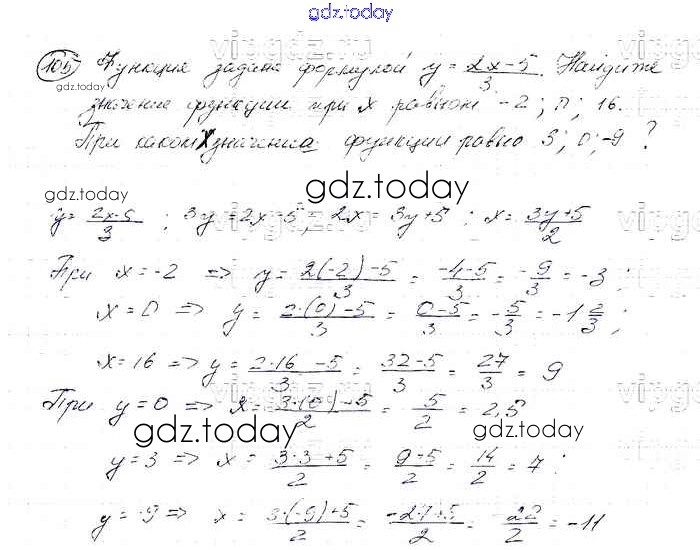 gdz.today
105 Функция задана формулой y = (2x-5)/3. Найдите
gdz.today
значение функции при x равном -2; 0; 16.
При каком x значение функции равно 3; 0; -9 ?
gdz.today
gdz.today
y = (2x-5)/3 ; 3y = 2x-5; 2x = 3y+5 ; x = (3y+5)/2
При x = -2 => y = (2(-2)-5)/3 = (-4-5)/3 = -9/3 = -3 ;
x = 0 => y = (2·(0)-5)/3 = (0-5)/3 = -5/3 = -1 2/3 ;
x = 16 => y = (2·16-5)/3 = (32-5)/3 = 27/3 = 9
При y = 0 => x = (3·(0)+5)/2 = 5/2 = 2,5
gdz.today
gdz.today
y = 3 => x = (3·3+5)/2 = (9+5)/2 = 14/2 = 7 ;
y = -9 => x = (3·(-9)+5)/2 = (-27+5)/2 = -22/2 = -11